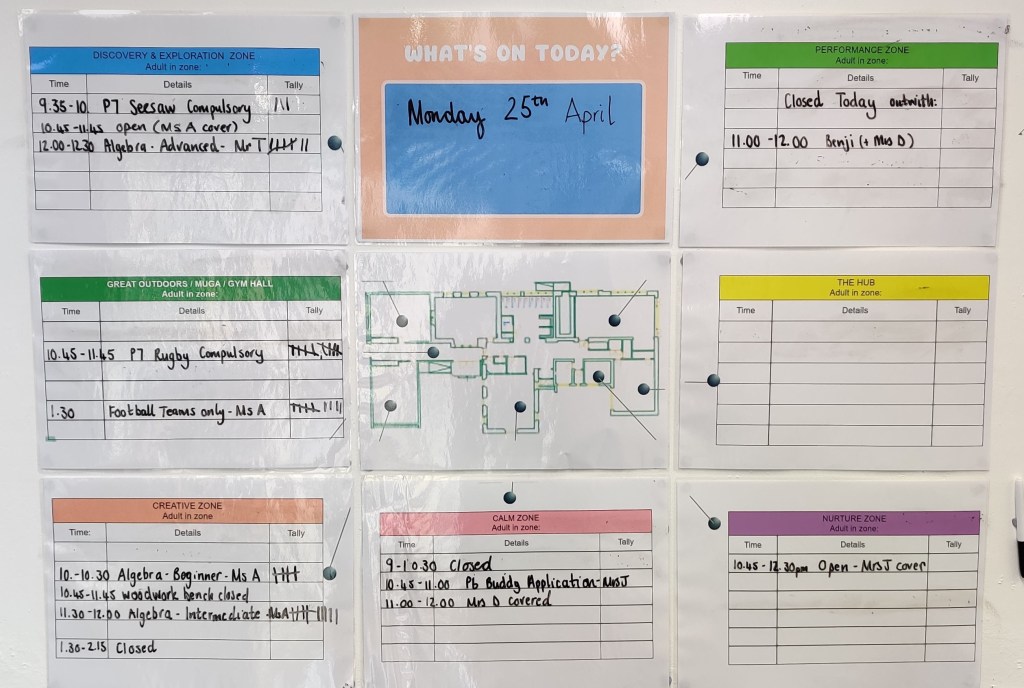 DISCOVERY & EXPLORATION ZONE
Adult in zone:
Time Details Tally
9.35-10. P7 Seesaw Compulsory
10.45-11.45 open (Ms A cover)
12.00-12.30 Algebra - Advanced - Mr T
WHAT'S ON TODAY?
Monday 25th April
PERFORMANCE ZONE
Adult in zone:
Time Details Tally
Closed Today outwith:
11.00-12.00 Benji (+ Mrs D)
GREAT OUTDOORS / MUGA / GYM HALL
Adult in zone:
Time Details Tally
10.45-11.45 P7 Rugby Compulsory
1.30 Football Teams only - Ms A
THE HUB
Adult in zone:
Time Details Tally
CREATIVE ZONE
Adult in zone
Time: Details Tally
10.-10.30 Algebra - Beginner - Ms A
10.45-11.45 woodwork bench closed
11.30-12.00 Algebra - Intermediate - Ms A
1.30-2.15 Closed
CALM ZONE
Adult in zone:
Time Details Tally
9-10.30 Closed
10.45-11.00 P6 Buddy Application - Mrs J
11.00-12.00 Mrs D covered
NURTURE ZONE
Adult in zone:
Time Details Tally
10.45-12.30pm Open - Mrs J cover